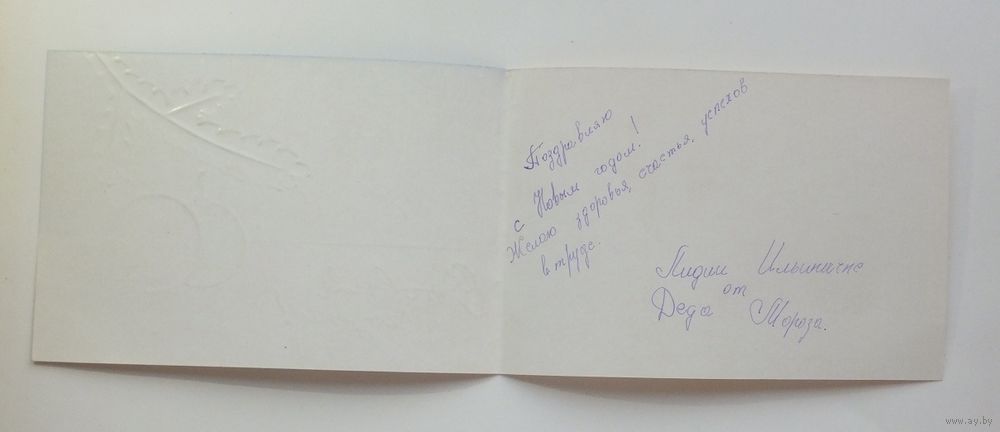 Поздравляю
с Новым годом!
Желаю здоровья, счастья, успехов
в труде.
Лидии Ильиничне
от
Деда Мороза.
www.ay.by